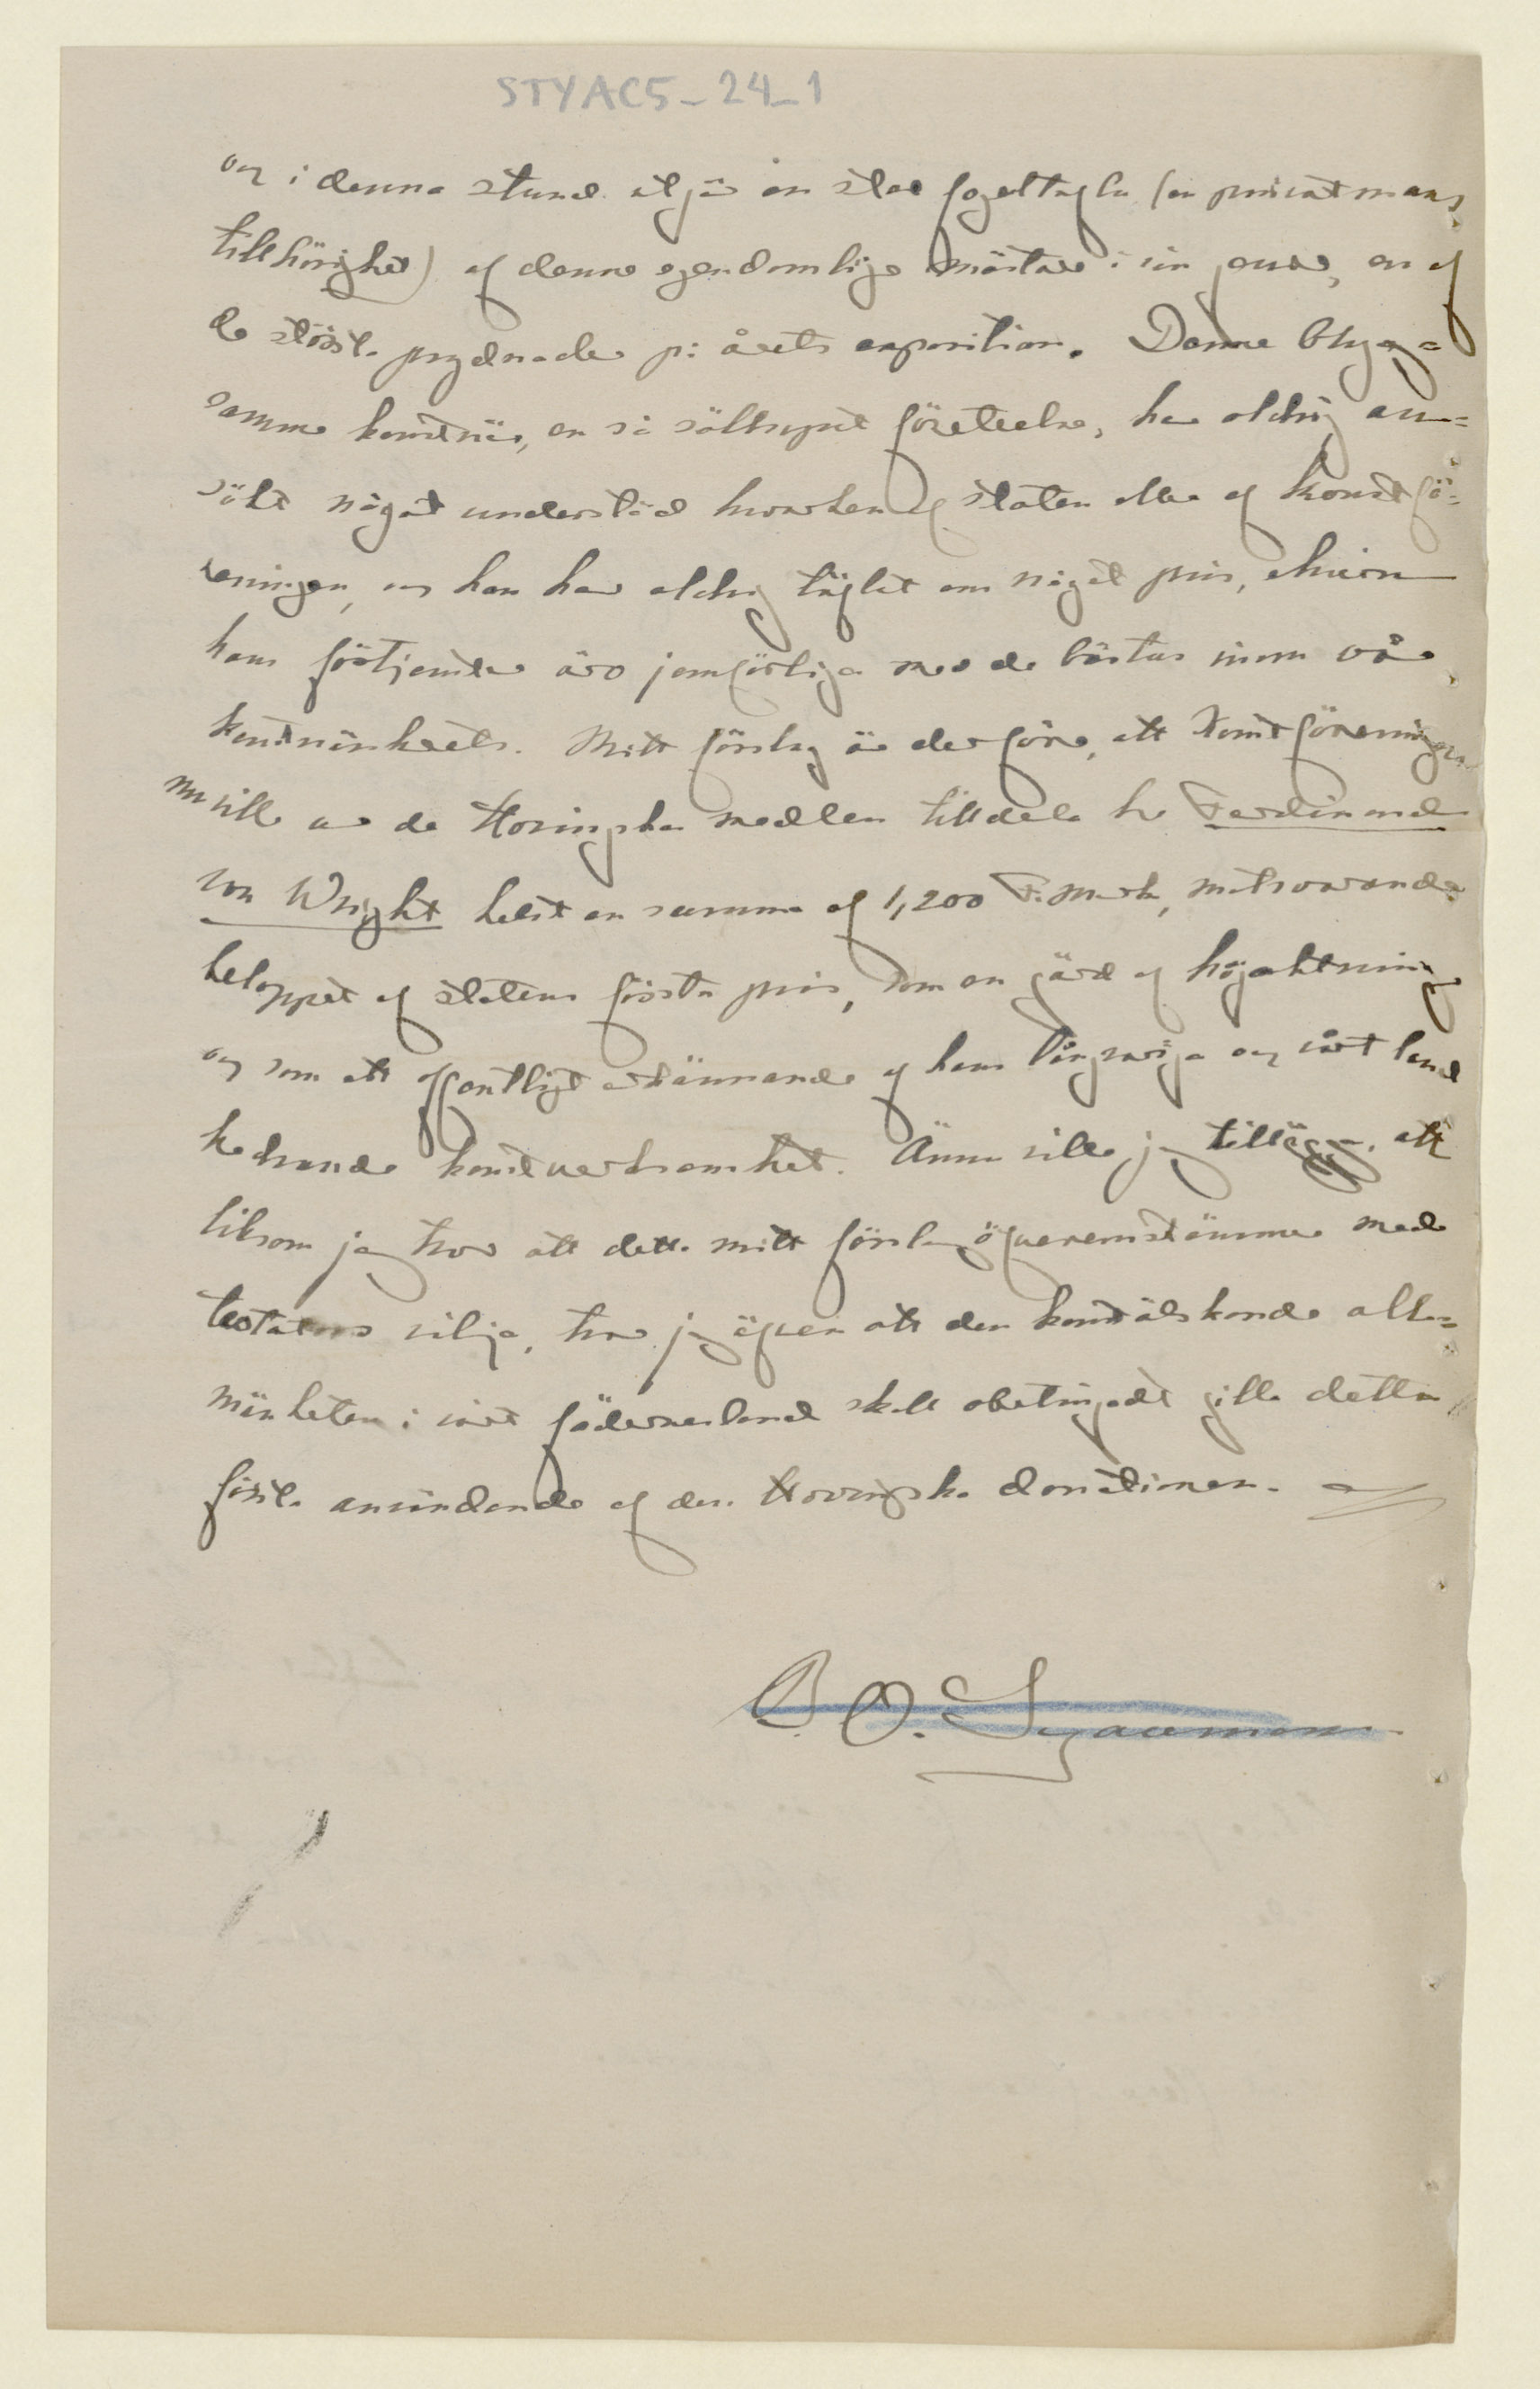 STYAC5_24_1
och i denna stund utgör en stor fogeltafla (en privatmans
tillhörighet) af denne egendomlige mästare i sin genre, en af
de största prydnader på årets exposition. Denne blyg=
samme konstnär, en så sällsynt företeelse, har aldrig an=
sökt något understöd hvarken af staten eller af Konstfö=
reningen, och han har aldrig täflat om något pris, ehuru
hans förtjenster äro jemförliga med de bästas inom vår
konstnärskrets. Mitt förslag är derföre, att Konstföreningen
nu ville ur de Hovingska medlen tilldela hr Ferdinand
von Wright helst en summa af 1,200 F. mark, motsvarande
beloppet af statens första pris, som en gärd af högaktning
och som ett offentligt erkännande af hans långvariga och vårt land
hedrande konstverksamhet. Ännu ville jag tillägga, att
liksom jag tror att detta mitt förslag öfverensstämmer med
testators vilja, tror jag äfven att den konstälskande all=
mänheten i vårt fädernesland skall obetingadt gilla detta
första användande af den Hovingska donationen.
B. O. Schauman